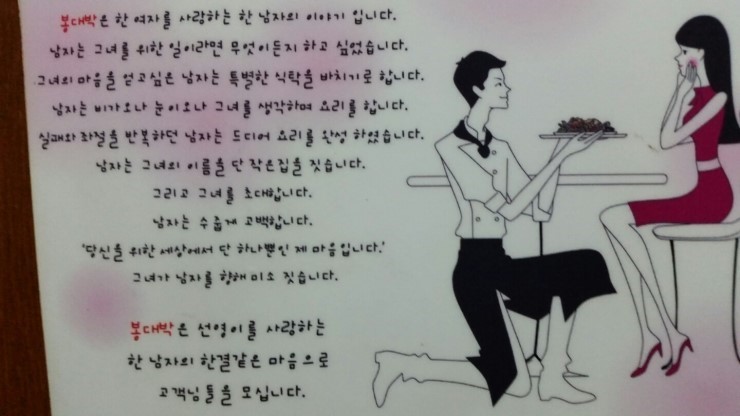 봉대박은 한 여자를 사랑하는 한 남자의 이야기 입니다.
남자는 그녀를 위한 일이라면 무엇이든지 하고 싶었습니다.
그녀의 마음을 얻고싶은 남자는 특별한 식탁을 바치기로 합니다.
남자는 비가오나 눈이오나 그녀를 생각하며 요리를 합니다.
실패와 좌절을 반복하던 남자는 드디어 요리를 완성 하였습니다.
남자는 그녀의 이름을 단 작은집을 짓습니다.
그리고 그녀를 초대합니다.
남자는 수줍게 고백합니다.
'당신을 위한 세상에서 단 하나뿐인 제 마음입니다.'
그녀가 남자를 향해 미소 짓습니다.
봉대박은 선영이를 사랑하는
한 남자의 한결같은 마음으로
고객님들을 모십니다.